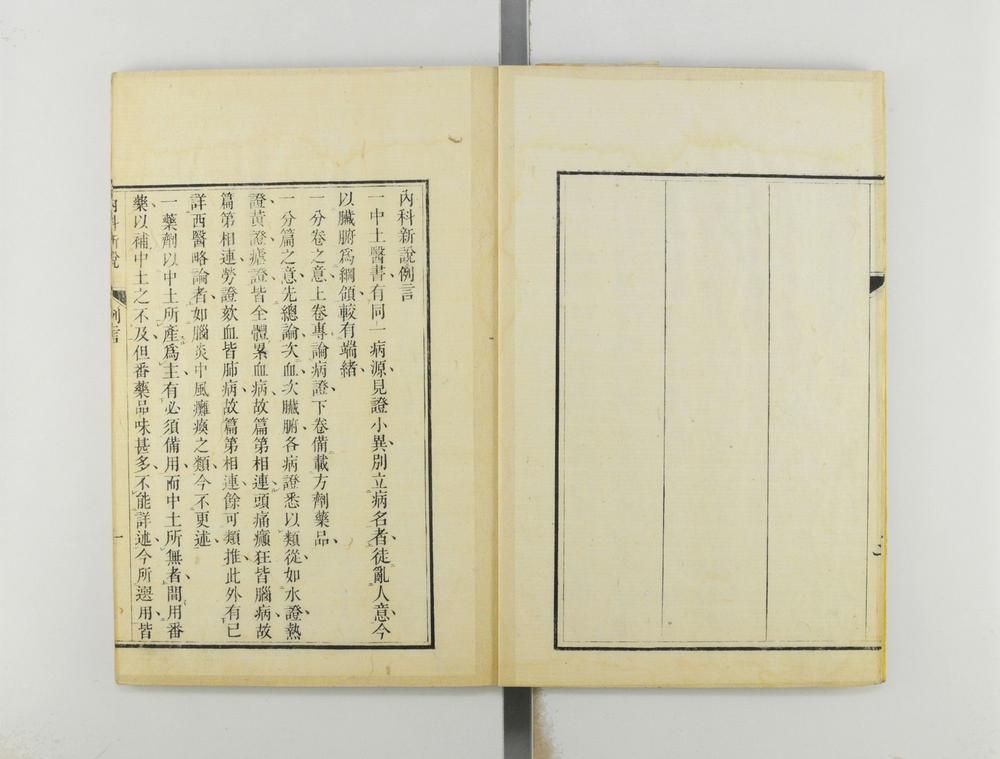 內科新說例言
一中土醫書有同一病源見證小異別立病名者徒亂人意今
以臟腑爲綱領較有端緒
一分卷之意上卷專論病證下卷備載方劑藥品
一分篇之意先總論次血次臟腑各病證悉以類從如水證熱
證黃證瘧證皆全體累血病故篇第相連頭痛癲狂皆腦病故
篇第相連勞證欬血皆肺病故篇第相連餘可類推此外有已
詳西醫略論者如腦炎中風癱瘓之類今不更述
一藥劑以中土所產爲主有必須備用而中土所無者間用番
藥以補中土之不及但番藥品味甚多不能詳述今所選用皆
內科新說 例言 一